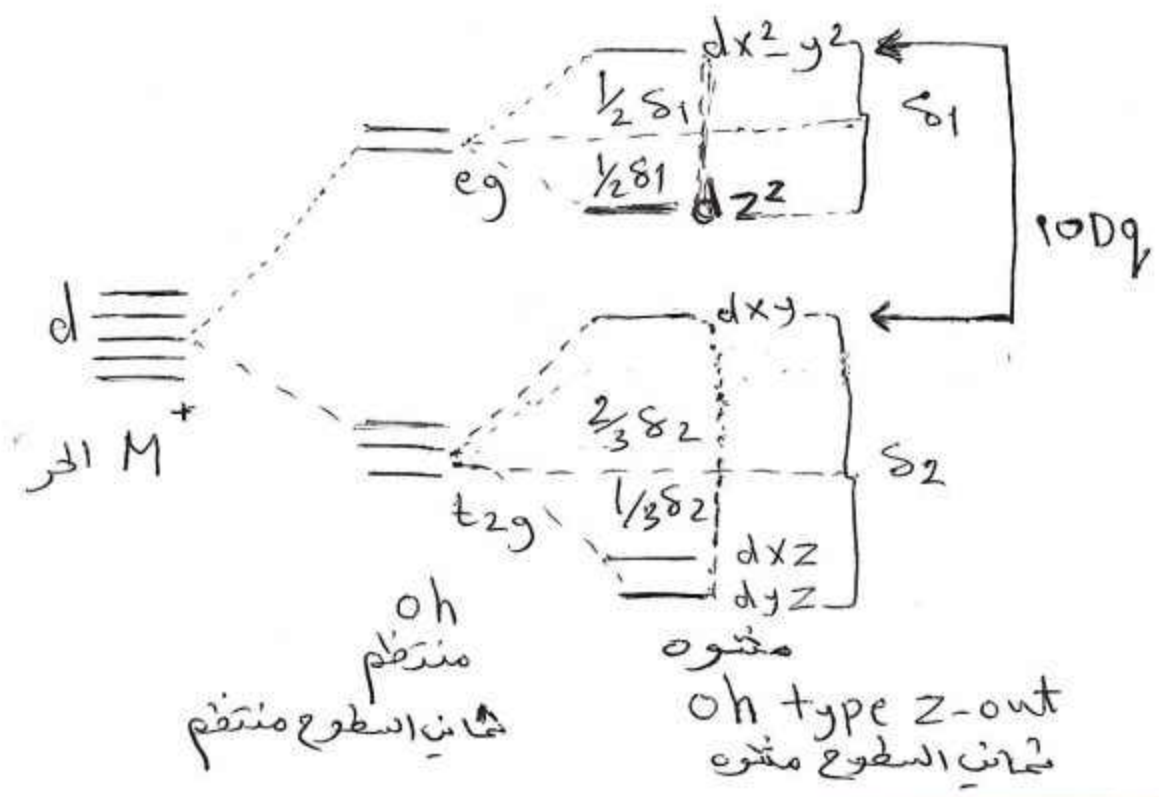 dx²-y²
½ δ1
δ1
eg
½ δ1
dz²
10Dq
d
dxy
⅔ δ2
M⁺ الحر
δ2
⅓ δ2
t2g
dxz
dyz
oh
منتظم
ثماني السطوح منتظم
مشوه
oh type z-out
ثماني السطوح مشوه